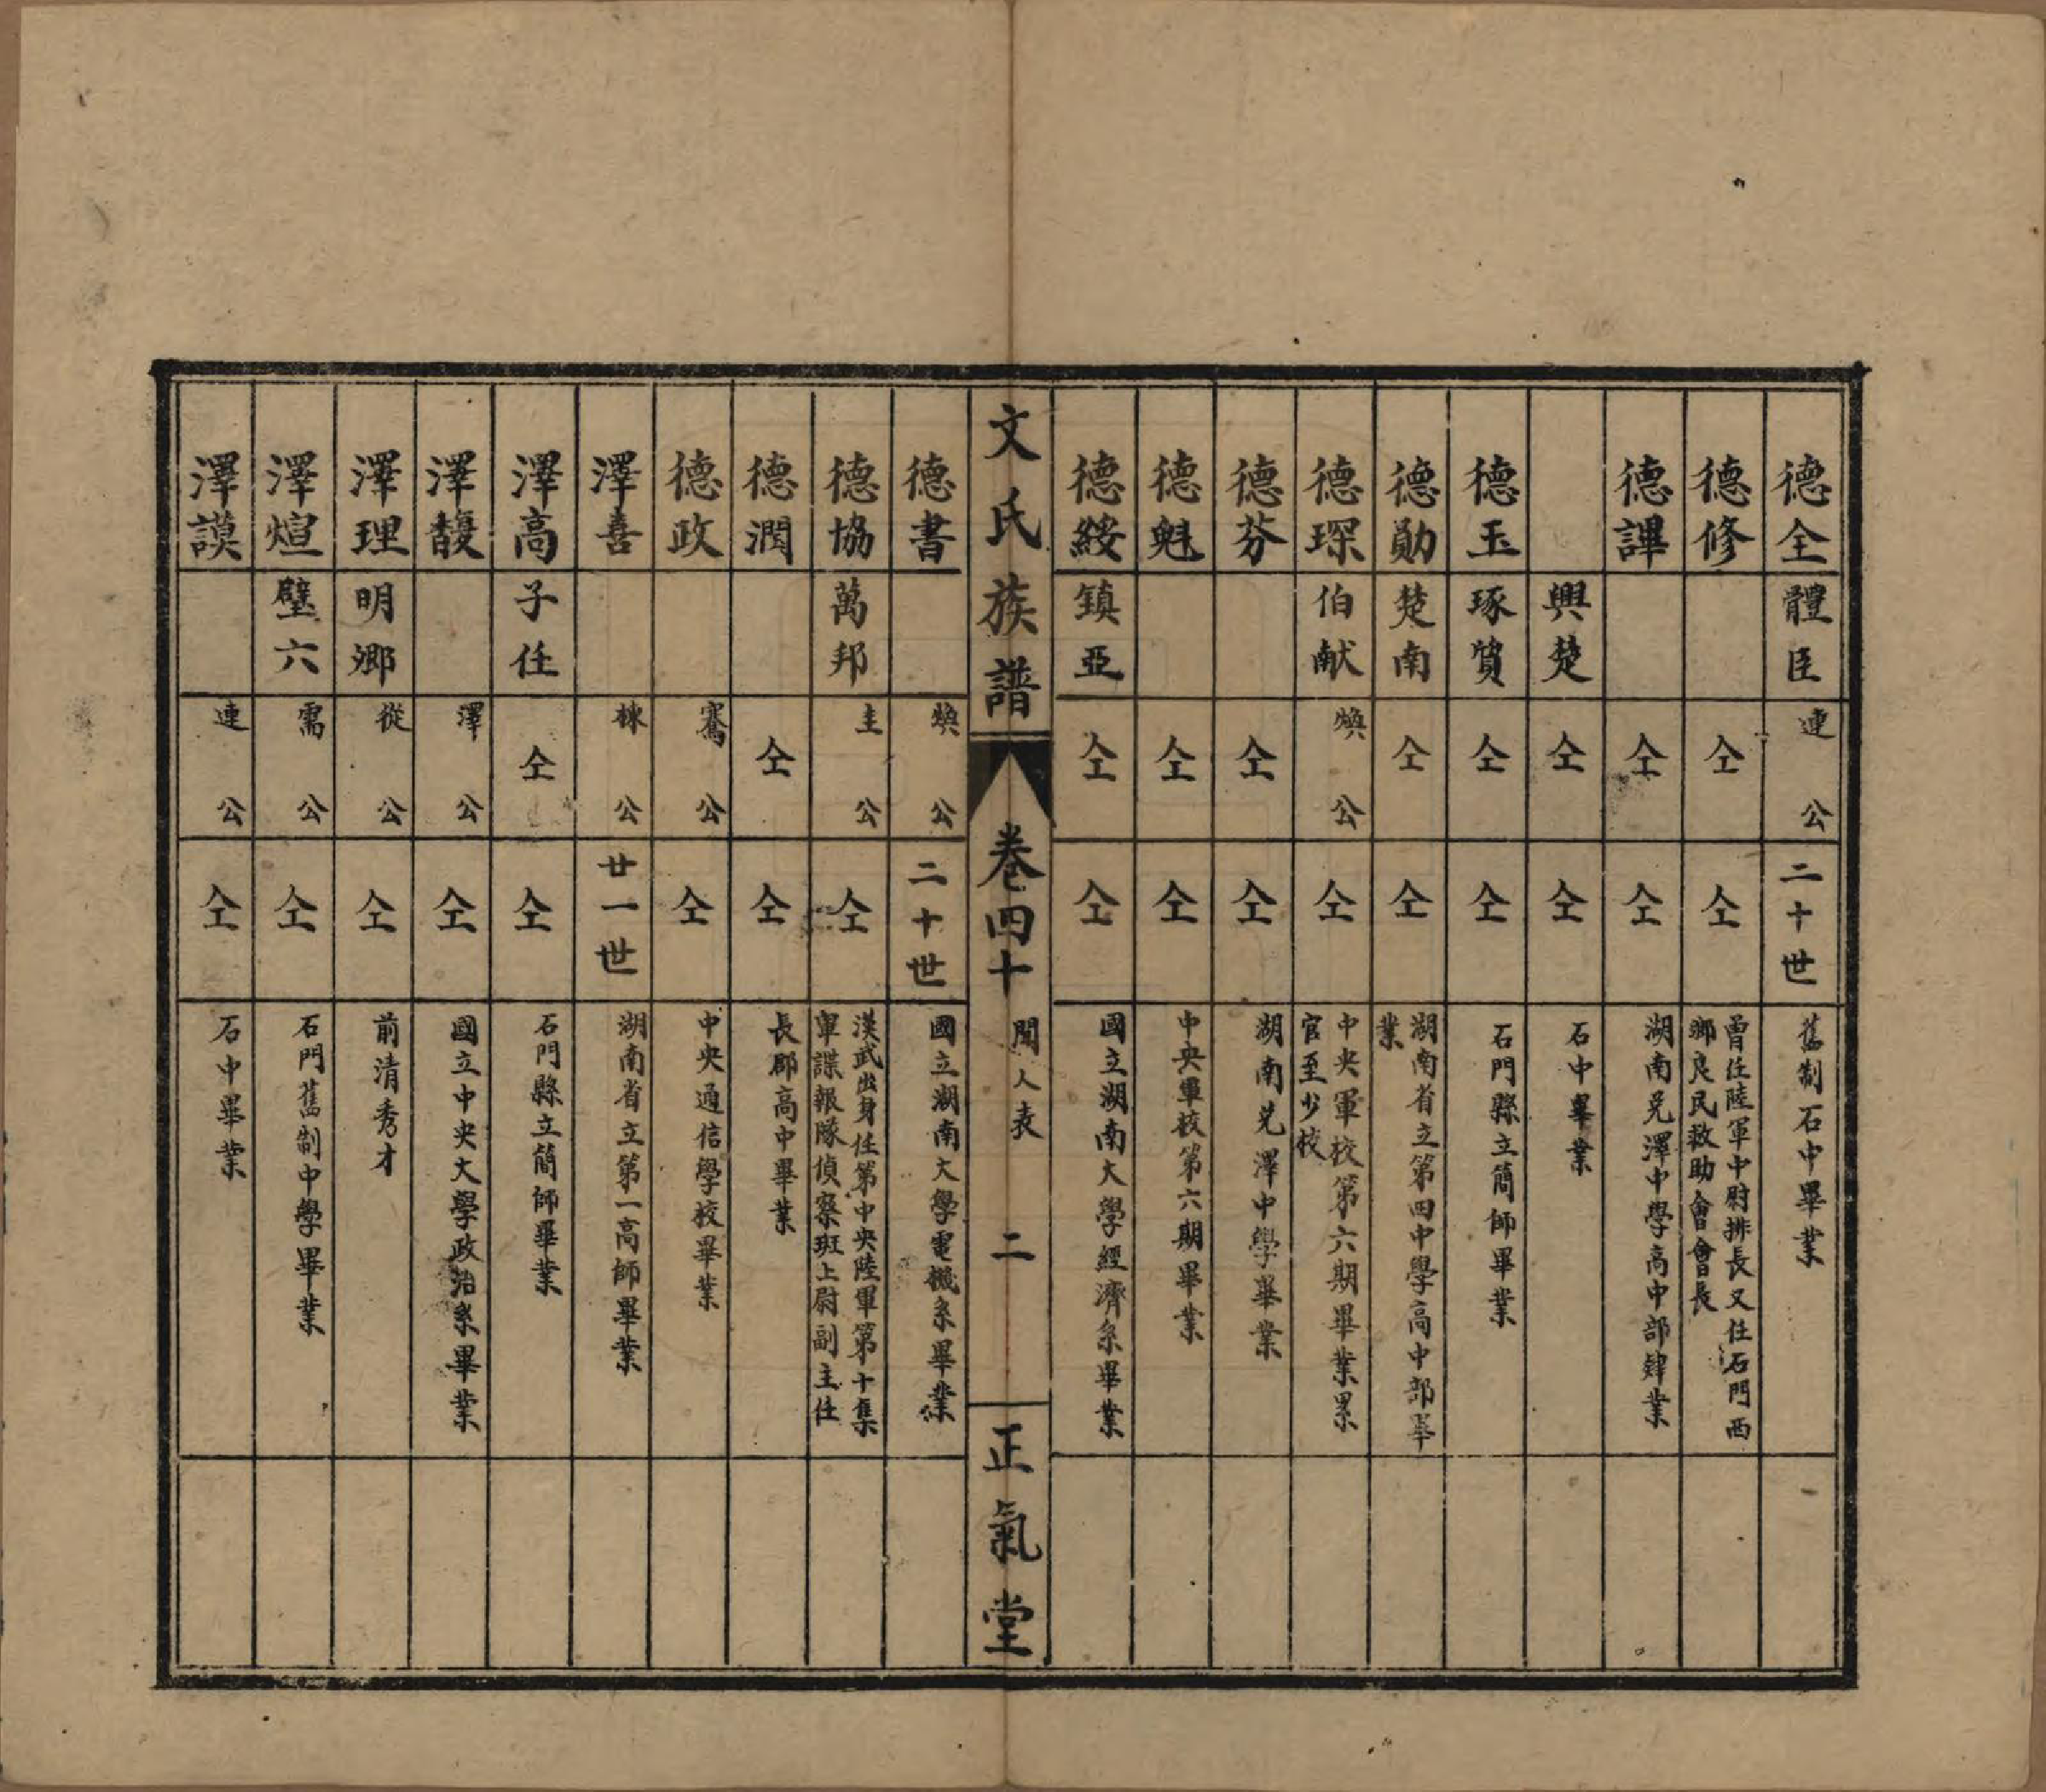 德全 體臣 連公 二十世 舊制石中畢業
德修 仝 仝 曾任陸軍中尉排長又任石門西
鄉良民救助會會長
德譁 仝 仝 湖南兑澤中學高中部肄業
興楚 仝 仝 石中畢業
德玉 琢質 仝 仝 石門縣立簡師畢業
德勛 楚南 仝 仝 湖南省立第四中學高中部畢
業
德琛 伯献 煥公 仝 中央軍校第六期畢業累
官至少校
德芬 仝 仝 湖南兑澤中學畢業
德魁 仝 仝 中央軍校第六期畢業
德綏 鎮亞 仝 仝 國立湖南大學經濟系畢業
文氏族譜 卷四十 聞人表 二 正氣堂
德書 煥公 二十世 國立湖南大學電機系畢業
德協 萬邦 圭公 仝 漢武出身任第中央陸軍第十集
軍諜報隊偵察班上尉副主任
德潤 仝 仝 長郡高中畢業
德政 騫公 仝 中央通信學校畢業
澤喜 棟公 廿一世 湖南省立第一高師畢業
澤高 子任 仝 仝 石門縣立簡師畢業
澤馥 澤公 仝 國立中央大學政治系畢業
澤理 明鄉 從公 仝 前清秀才
澤煊 璧六 需公 仝 石門舊制中學畢業
澤謨 連公 仝 石中畢業